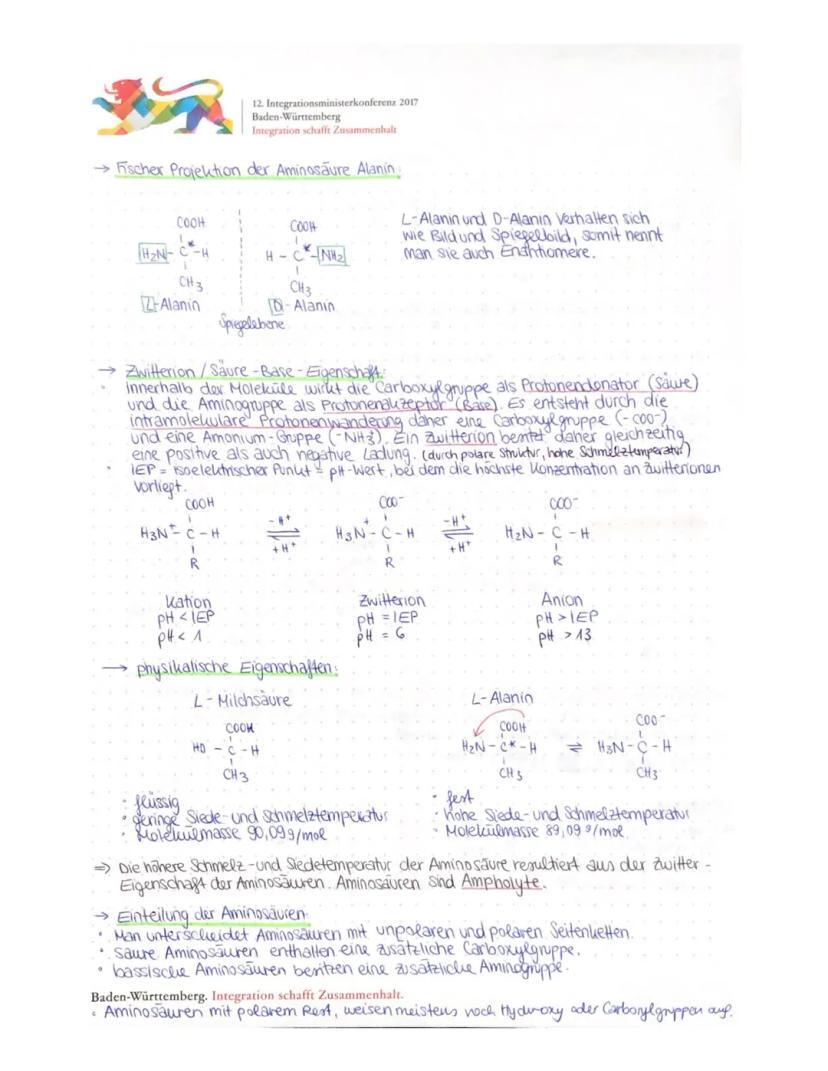 12. Integrationsministerkonferenz 2017
Baden-Württemberg
Integration schafft Zusammenhalt
→ Fischer Projektion der Aminosäure Alanin:
COOH
H2N - C* - H
CH3
L-Alanin
Spiegelebene
COOH
H - C* - NH2
CH3
D-Alanin
L-Alanin und D-Alanin Verhalten sich
wie Bild und Spiegelbild, somit nennt
man sie auch Enantiomere.
→ Zwitterion / Säure-Base-Eigenschaft:
• Innerhalb der Moleküle wirkt die Carboxylgruppe als Protonendonator (Säure)
und die Aminogruppe als Protonenakzeptor (Base). Es entsteht durch die
intramolekulare Protonenwanderung daher eine Carboxylgruppe (-COO-)
und eine Amonium-Gruppe (-NH3+). Ein Zwitterion besitzt daher gleichzeitig
eine positive als auch negative Ladung. (durch polare Struktur, hohe Schmelztemperatur)
• IEP = isoelektrischer Punkt = pH-Wert, bei dem die höchste Konzentration an Zwitterionen
vorliegt.
COOH COO- COO-
H3N+ - C - H -H+ ⇌ +H+ H3N+ - C - H -H+ ⇌ +H+ H2N - C - H
R R R
Kation Zwitterion Anion
pH < IEP pH = IEP pH > IEP
pH < 1 pH = 6 pH > 13
→ physikalische Eigenschaften:
L-Milchsäure
COOH
HO - C - H
CH3
• flüssig
• geringe Siede- und Schmelztemperatur
• Molekülmasse 90,09 g/mol
L-Alanin
COOH COO-
H2N - C* - H ⇌ H3N - C - H
CH3 CH3
• fest
• hohe Siede- und Schmelztemperatur
• Molekülmasse 89,09 g/mol
⇒ Die höhere Schmelz- und Siedetemperatur der Aminosäure resultiert aus der Zwitter-
Eigenschaft der Aminosäuren. Aminosäuren sind Ampholyte.
→ Einteilung der Aminosäuren:
• Man unterscheidet Aminosäuren mit unpolaren und polaren Seitenketten.
• saure Aminosäuren enthalten eine zusätzliche Carboxylgruppe.
• bassische Aminosäuren besitzen eine zusätzliche Aminogruppe.
Baden-Württemberg. Integration schafft Zusammenhalt.
• Aminosäuren mit polarem Rest, weisen meistens noch Hydroxy oder Carbonylgruppen auf.